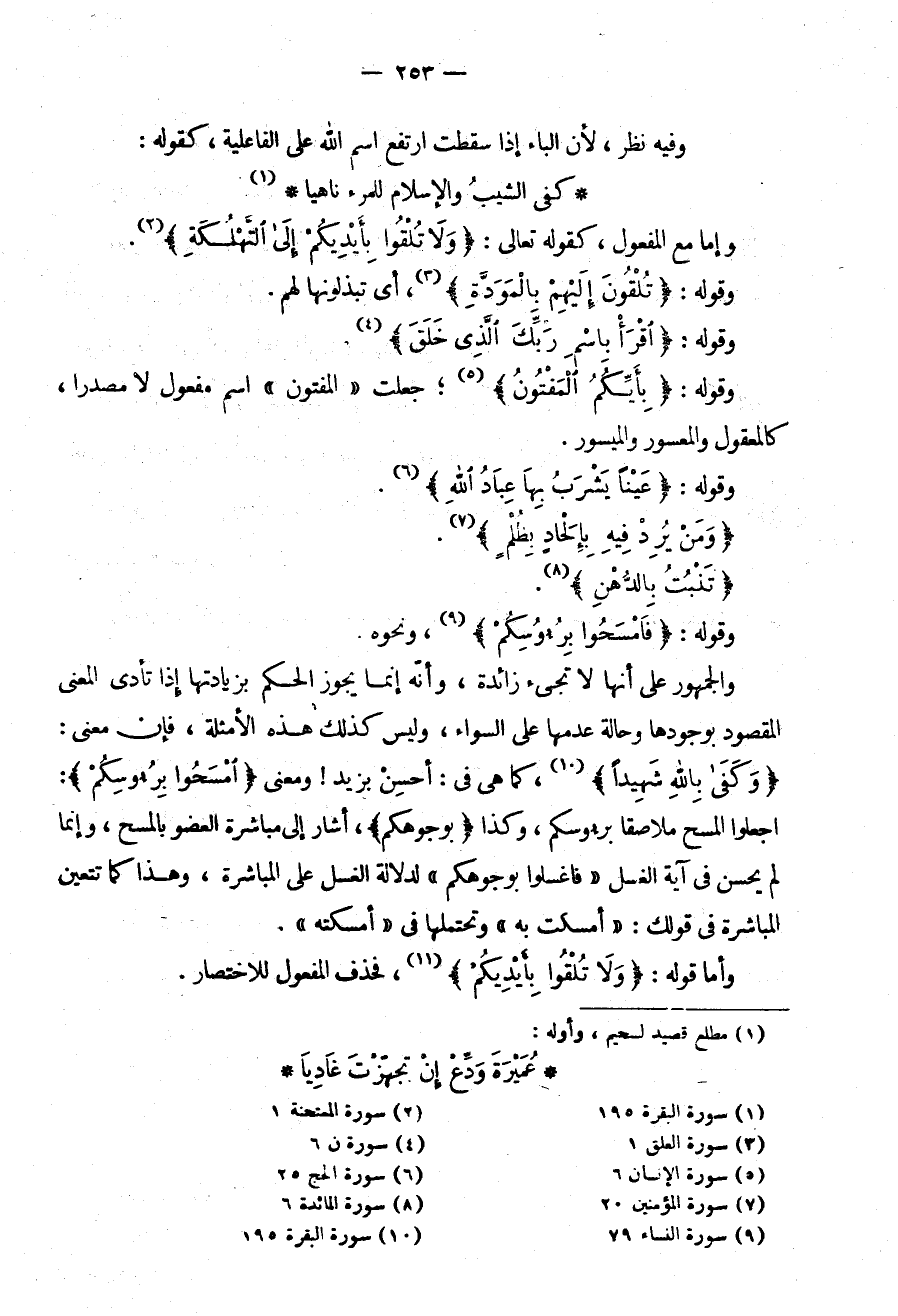 — ٢٥٣ —
وفيه نظر ، لأن الباء إذا سقطت ارتفع اسم الله على الفاعلية ، كقوله :
* كفى الشيبُ والإسلام للمرء ناهيا * (١)
وإما مع المفعول ، كقوله تعالى : ﴿ وَلَا تُلْقُوا بِأَيْدِيكُمْ إِلَىٰ ٱلتَّهْلُكَةِ ﴾(٢).
وقوله : ﴿ تُلْقُونَ إِلَيْهِمْ بِالْمَوَدَّةِ ﴾(٣)، أى تبذلونها لهم .
وقوله : ﴿ ٱقْرَأْ بِاسْمِ رَبِّكَ ٱلَّذِى خَلَقَ ﴾(٤).
وقوله : ﴿ بِأَيِّكُمُ ٱلْمَفْتُونُ ﴾(٥) ؛ جعلت « المفتون » اسم مفعول لا مصدرا ،
كالمعقول والمعسور والميسور .
وقوله : ﴿ عَيْنًا يَشْرَبُ بِهَا عِبَادُ ٱللهِ ﴾(٦) .
﴿ وَمَنْ يُرِدْ فِيهِ بِإِلْحَادٍ بِظُلْمٍ ﴾(٧).
﴿ تَنْبُتُ بِالدُّهْنِ ﴾(٨).
وقوله : ﴿ فَامْسَحُوا بِرُءُوسِكُمْ ﴾(٩) ، ونحوه .
والجمهور على أنها لا تجىء زائدة ، وأنّه إنما يجوز الحكم بزيادتها إذا تأدى المعنى
المقصود بوجودها وحالة عدمها على السواء ، وليس كذلك هذه الأمثلة ، فإن معنى :
﴿ وَكَفَىٰ بِاللهِ شَهِيداً ﴾(١٠)، كما هى فى : أحسِنْ بزيد ! ومعنى ﴿ ٱمْسَحُوا بِرُءوسِكُمْ ﴾:
اجعلوا المسح ملاصقا برءوسكم ، وكذا ﴿ بوجوهكم﴾، أشار إلى مباشرة العضو بالمسح ، وإنما
لم يحسن فى آية الغسل « فاغسلوا بوجوهكم » لدلالة الغسل على المباشرة ، وهذا كما تتعين
المباشرة فى قولك : « أمسكت به » وتحتملها فى « أمسكته » .
وأما قوله : ﴿ وَلَا تُلْقُوا بِأَيْدِيكُمْ ﴾(١١) ، فحذف المفعول للاختصار .
(١) مطلع قصيد لسحيم ، وأوله :
* عُمَيْرَةَ وَدِّعْ إِنْ تجهّزْتَ غَادِيَا *
(١) سورة البقرة ١٩٥
(٢) سورة الممتحنة ١
(٣) سورة العلق ١
(٤) سورة ن ٦
(٥) سورة الإنسان ٦
(٦) سورة الحج ٢٥
(٧) سورة المؤمنين ٢٠
(٨) سورة المائدة ٦
(٩) سورة النساء ٧٩
(١٠) سورة البقرة ١٩٥